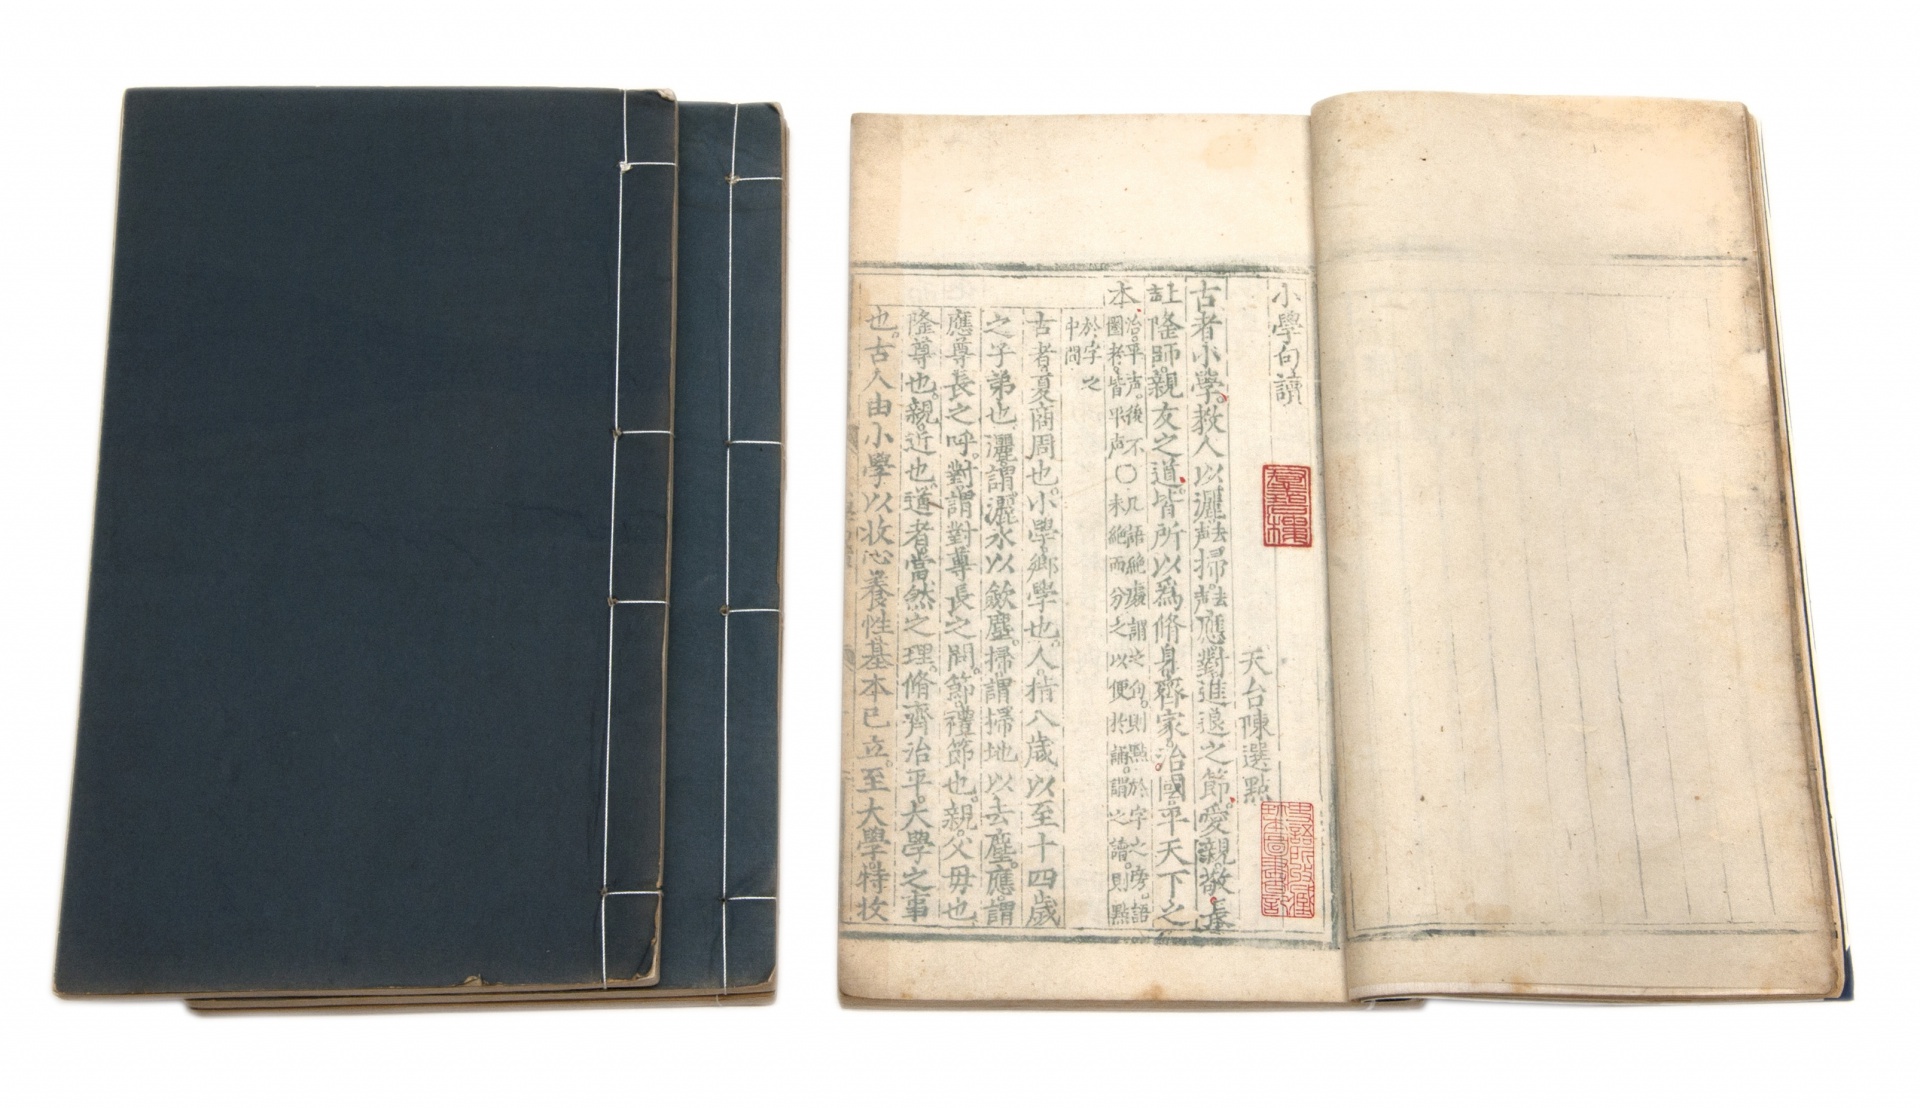 小學句讀
天台陳選點
古者小學教人以灑去聲掃去聲應對進退之節愛親敬長
上聲隆師親友之道皆所以爲脩身齊家治國平天下之
本治平声後不〇凡語絶處謂之句則點於字之旁語
國者皆平声未絶而分之以便於誦謂之讀則點
於字之
中間
古者夏商周也小學鄉學也人指八歲以至十四歲
之子弟也灑謂灑水以歛塵掃謂掃地以去塵應謂
應尊長之呼對謂對尊長之問節禮節也親父母也
隆尊也親近也道者當然之理脩齊治平大學之事
也古人由小學以收心養性基本已立至大學特收